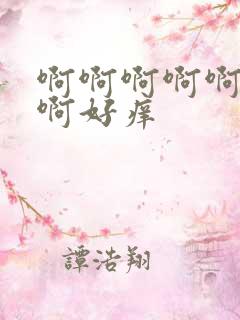 啊啊啊啊啊
啊好痒
譚浩翔